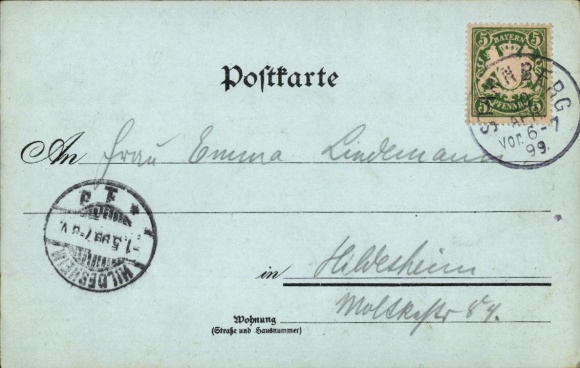 5 BAYERN 5
5 PFENNIG 5
STARNBERG
APR
Vor. 6-7
99.
Postkarte
An Frau Emma Lindemann
HILDESHEIM
-1.5.99.7-8 V.
in Hildesheim
Moltkestr
Wohnung
(Straße und Hausnummer)